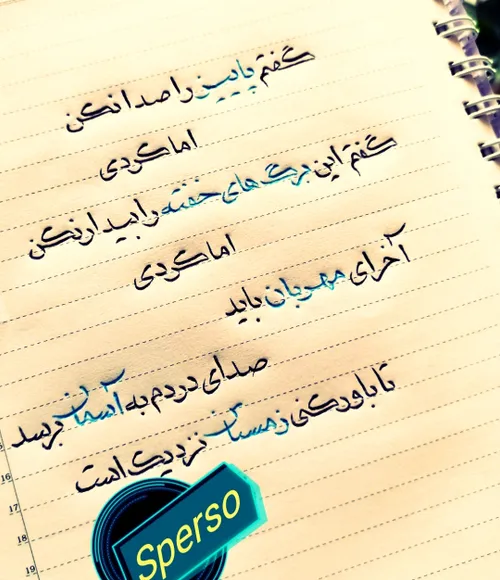 گفتم پاییز را صدا نکن
اما کردی
گفتم این برگ های خفته را بیدار نکن
اما کردی
آخر ای مهربان باید
صدای دردم به آسمان برسد
تا باور کنی زمستان نزدیک است
16
17
18
19
Sperso